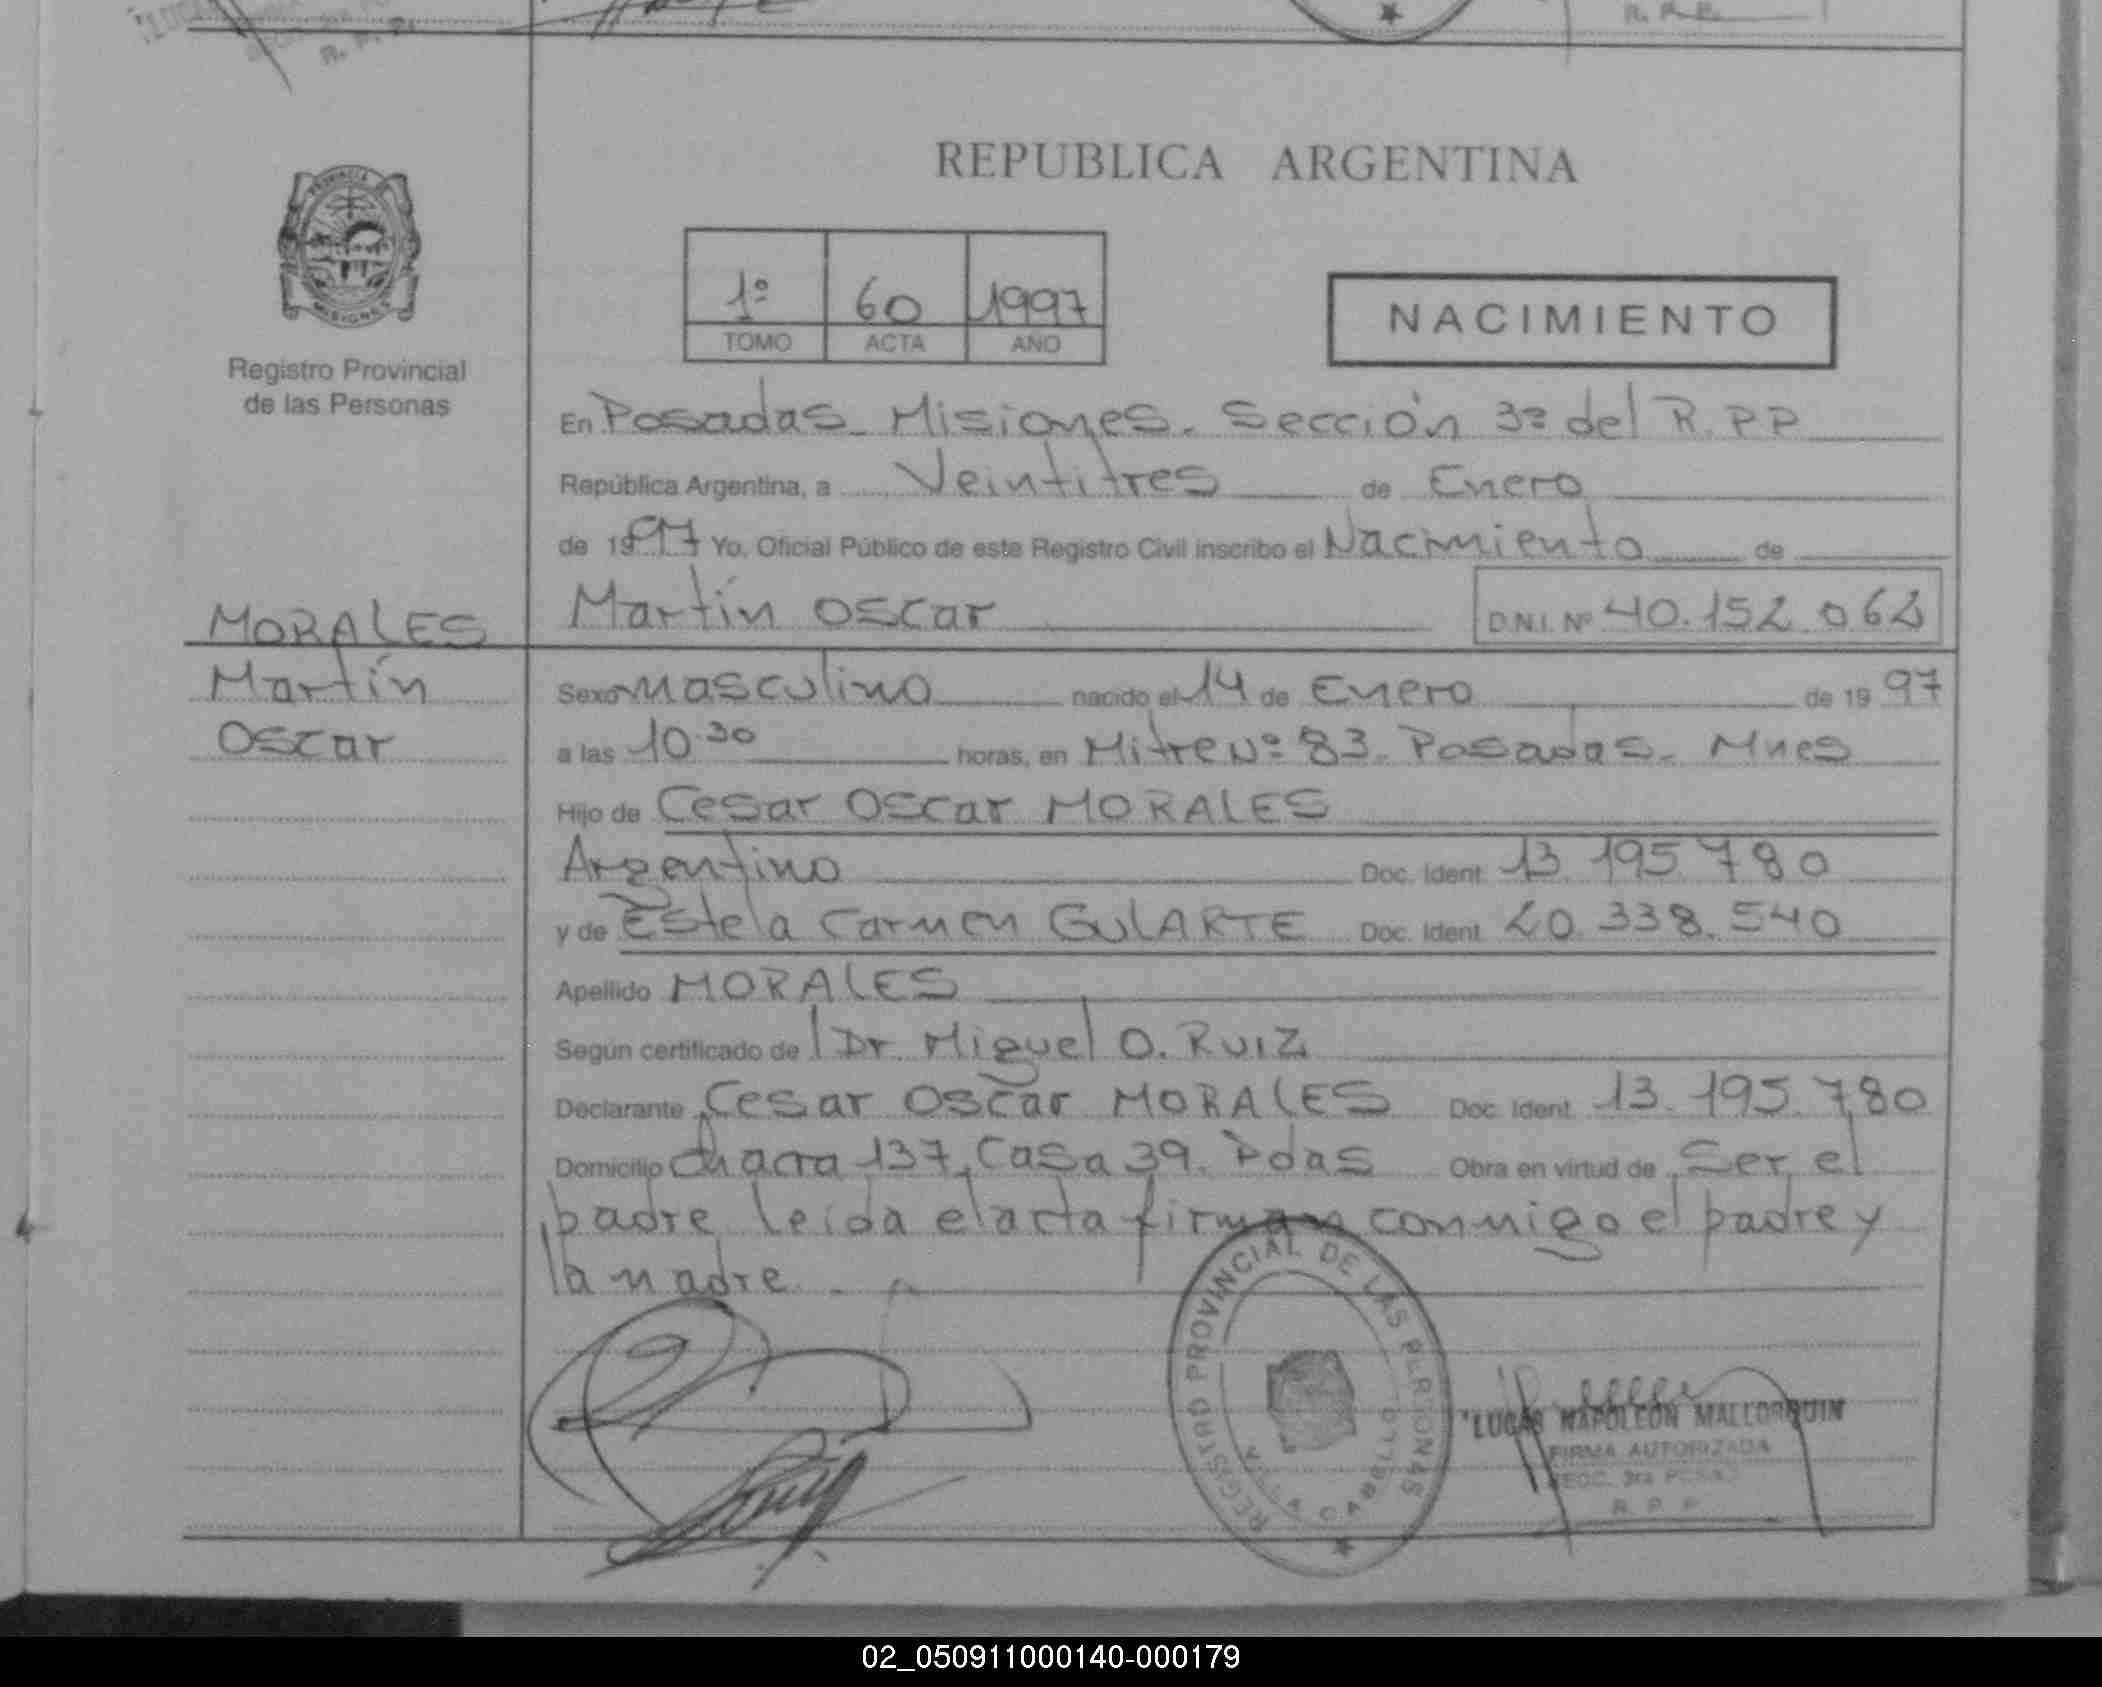 R. P. P.
R. P. P.
REPUBLICA ARGENTINA
PROVINCIA
MISIONES
1º 60 1997
TOMO ACTA AÑO
NACIMIENTO
Registro Provincial
de las Personas
En Posadas - Misiones. Sección 3ª del R. P P
República Argentina, a Veintitres de Enero
de 1997 Yo, Oficial Público de este Registro Civil inscribo el Nacimiento de
Martín Oscar D.N.I. Nº 40.152.062
MORALES
Martín
Oscar
Sexo masculino nacido el 14 de Enero de 1997
a las 10.30 horas, en Mitre Nº 83. Posadas - Mnes
Hijo de Cesar Oscar MORALES
Argentino Doc. Ident. 13.195.780
y de Estela Carmen GULARTE Doc. Ident. 20.338.540
Apellido MORALES
Según certificado del Dr Miguel O. RUIZ
Declarante Cesar Oscar MORALES Doc. Ident. 13.195.780
Domicilio Chacra 137, Casa 39. Pdas Obra en virtud de Ser el
padre leída el acta firman conmigo el padre y
la madre.
REGISTRO PROVINCIAL DE LAS PERSONAS
VILLA CABELLO
LUCAS NAPOLEON MALLORQUIN
FIRMA AUTORIZADA
SECC. 3ra
R. P. P.
02_050911000140-000179